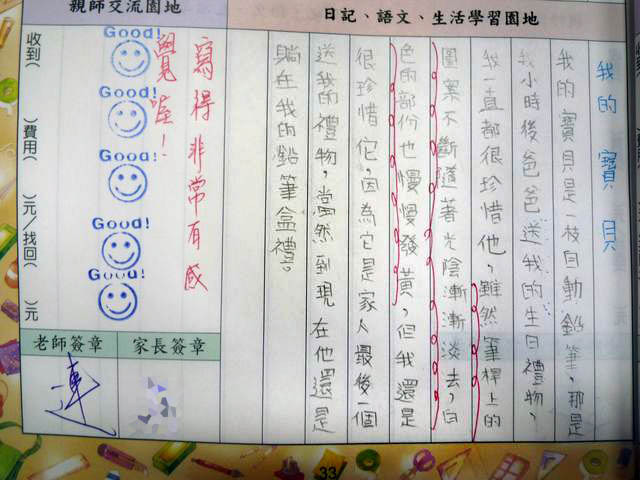 日記、語文、生活學習園地
我的寶貝
我的寶貝是一枝自動鉛筆，那是
我小時後爸爸送我的生日禮物，
我一直都很珍惜他，雖然筆桿上的
圖案不斷隨著光陰漸漸淡去，白
色的部份也慢慢發黃，但我還是
很珍惜它，因為它是家人最後一個
送我的禮物，當然到現在他還是
躺在我的鉛筆盒禮。
親師交流園地
寫得非常有感
覺喔！
Good!
Good!
Good!
Good!
Good!
收到（ ）費用（ ）元／找回（ ）元
老師簽章
家長簽章
連
33